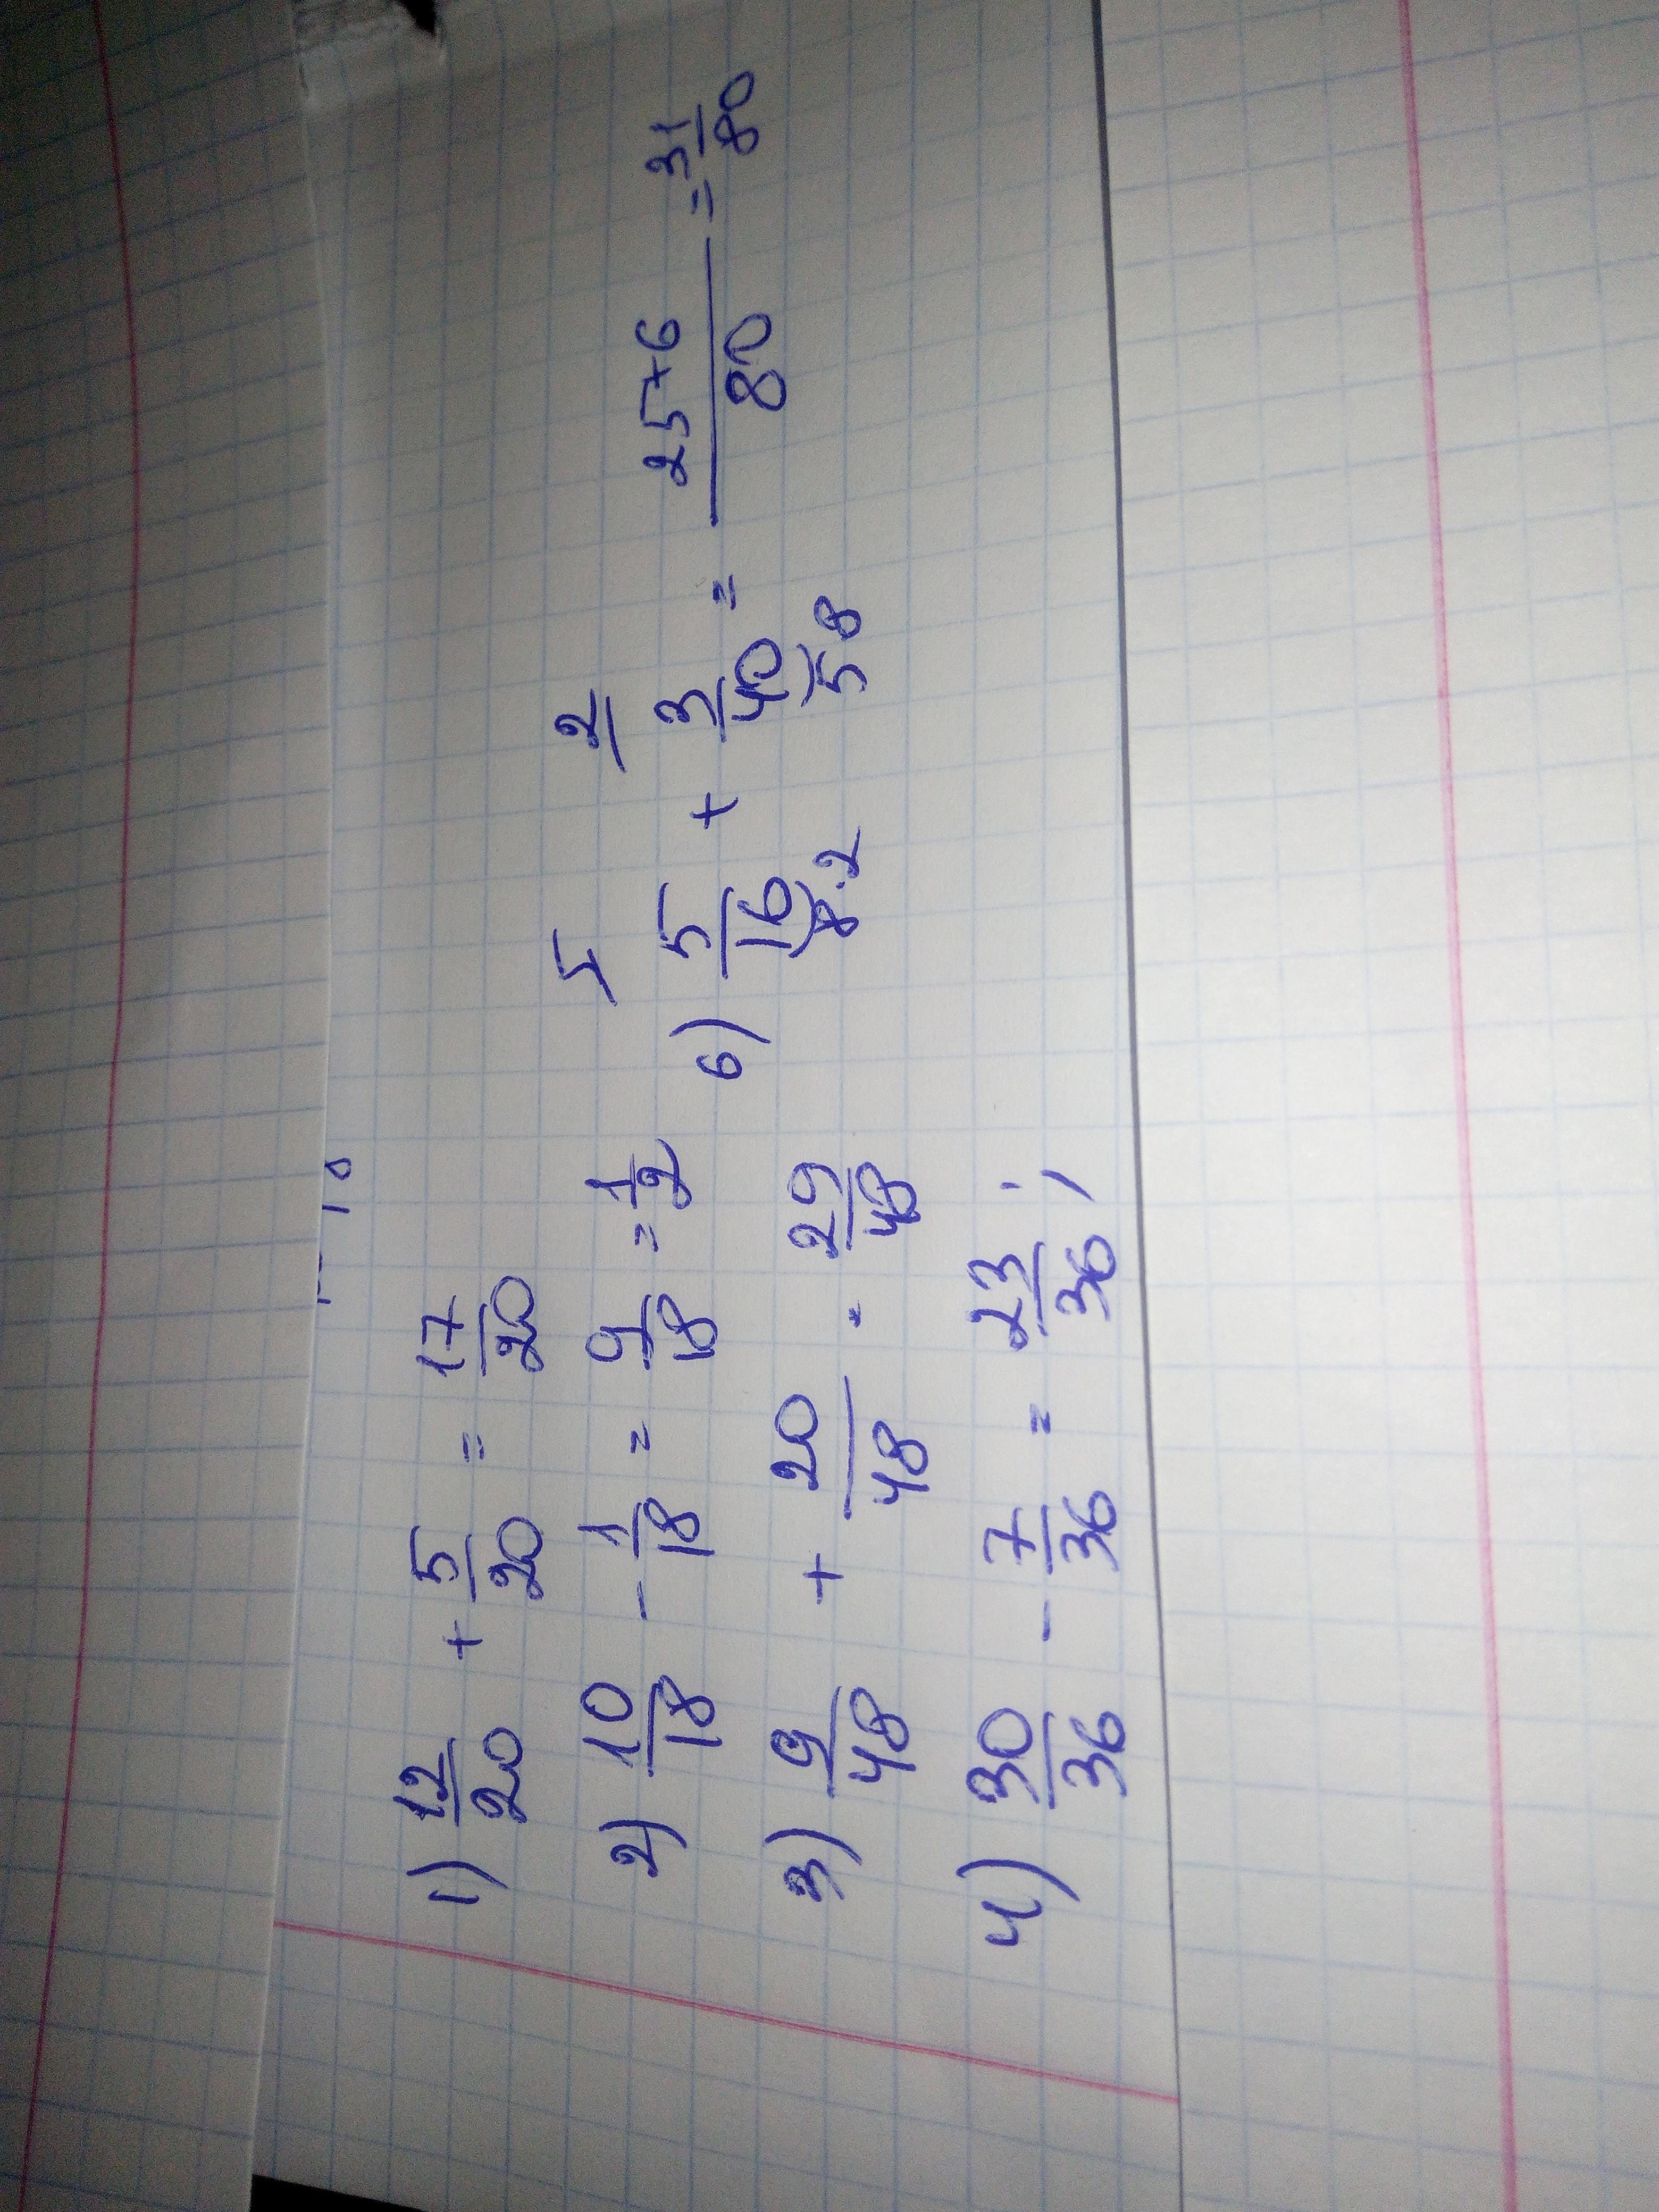 1) 12/20 + 5/20 = 17/20
2) 10/18 - 1/18 = 9/18 = 1/2
3) 9/48 + 20/48 . 29/48
4) 30/36 - 7/36 = 23/36 ;
5 2
6) 5/16 + 3/40 = 25+6/80 = 31/80
8·2 5 8